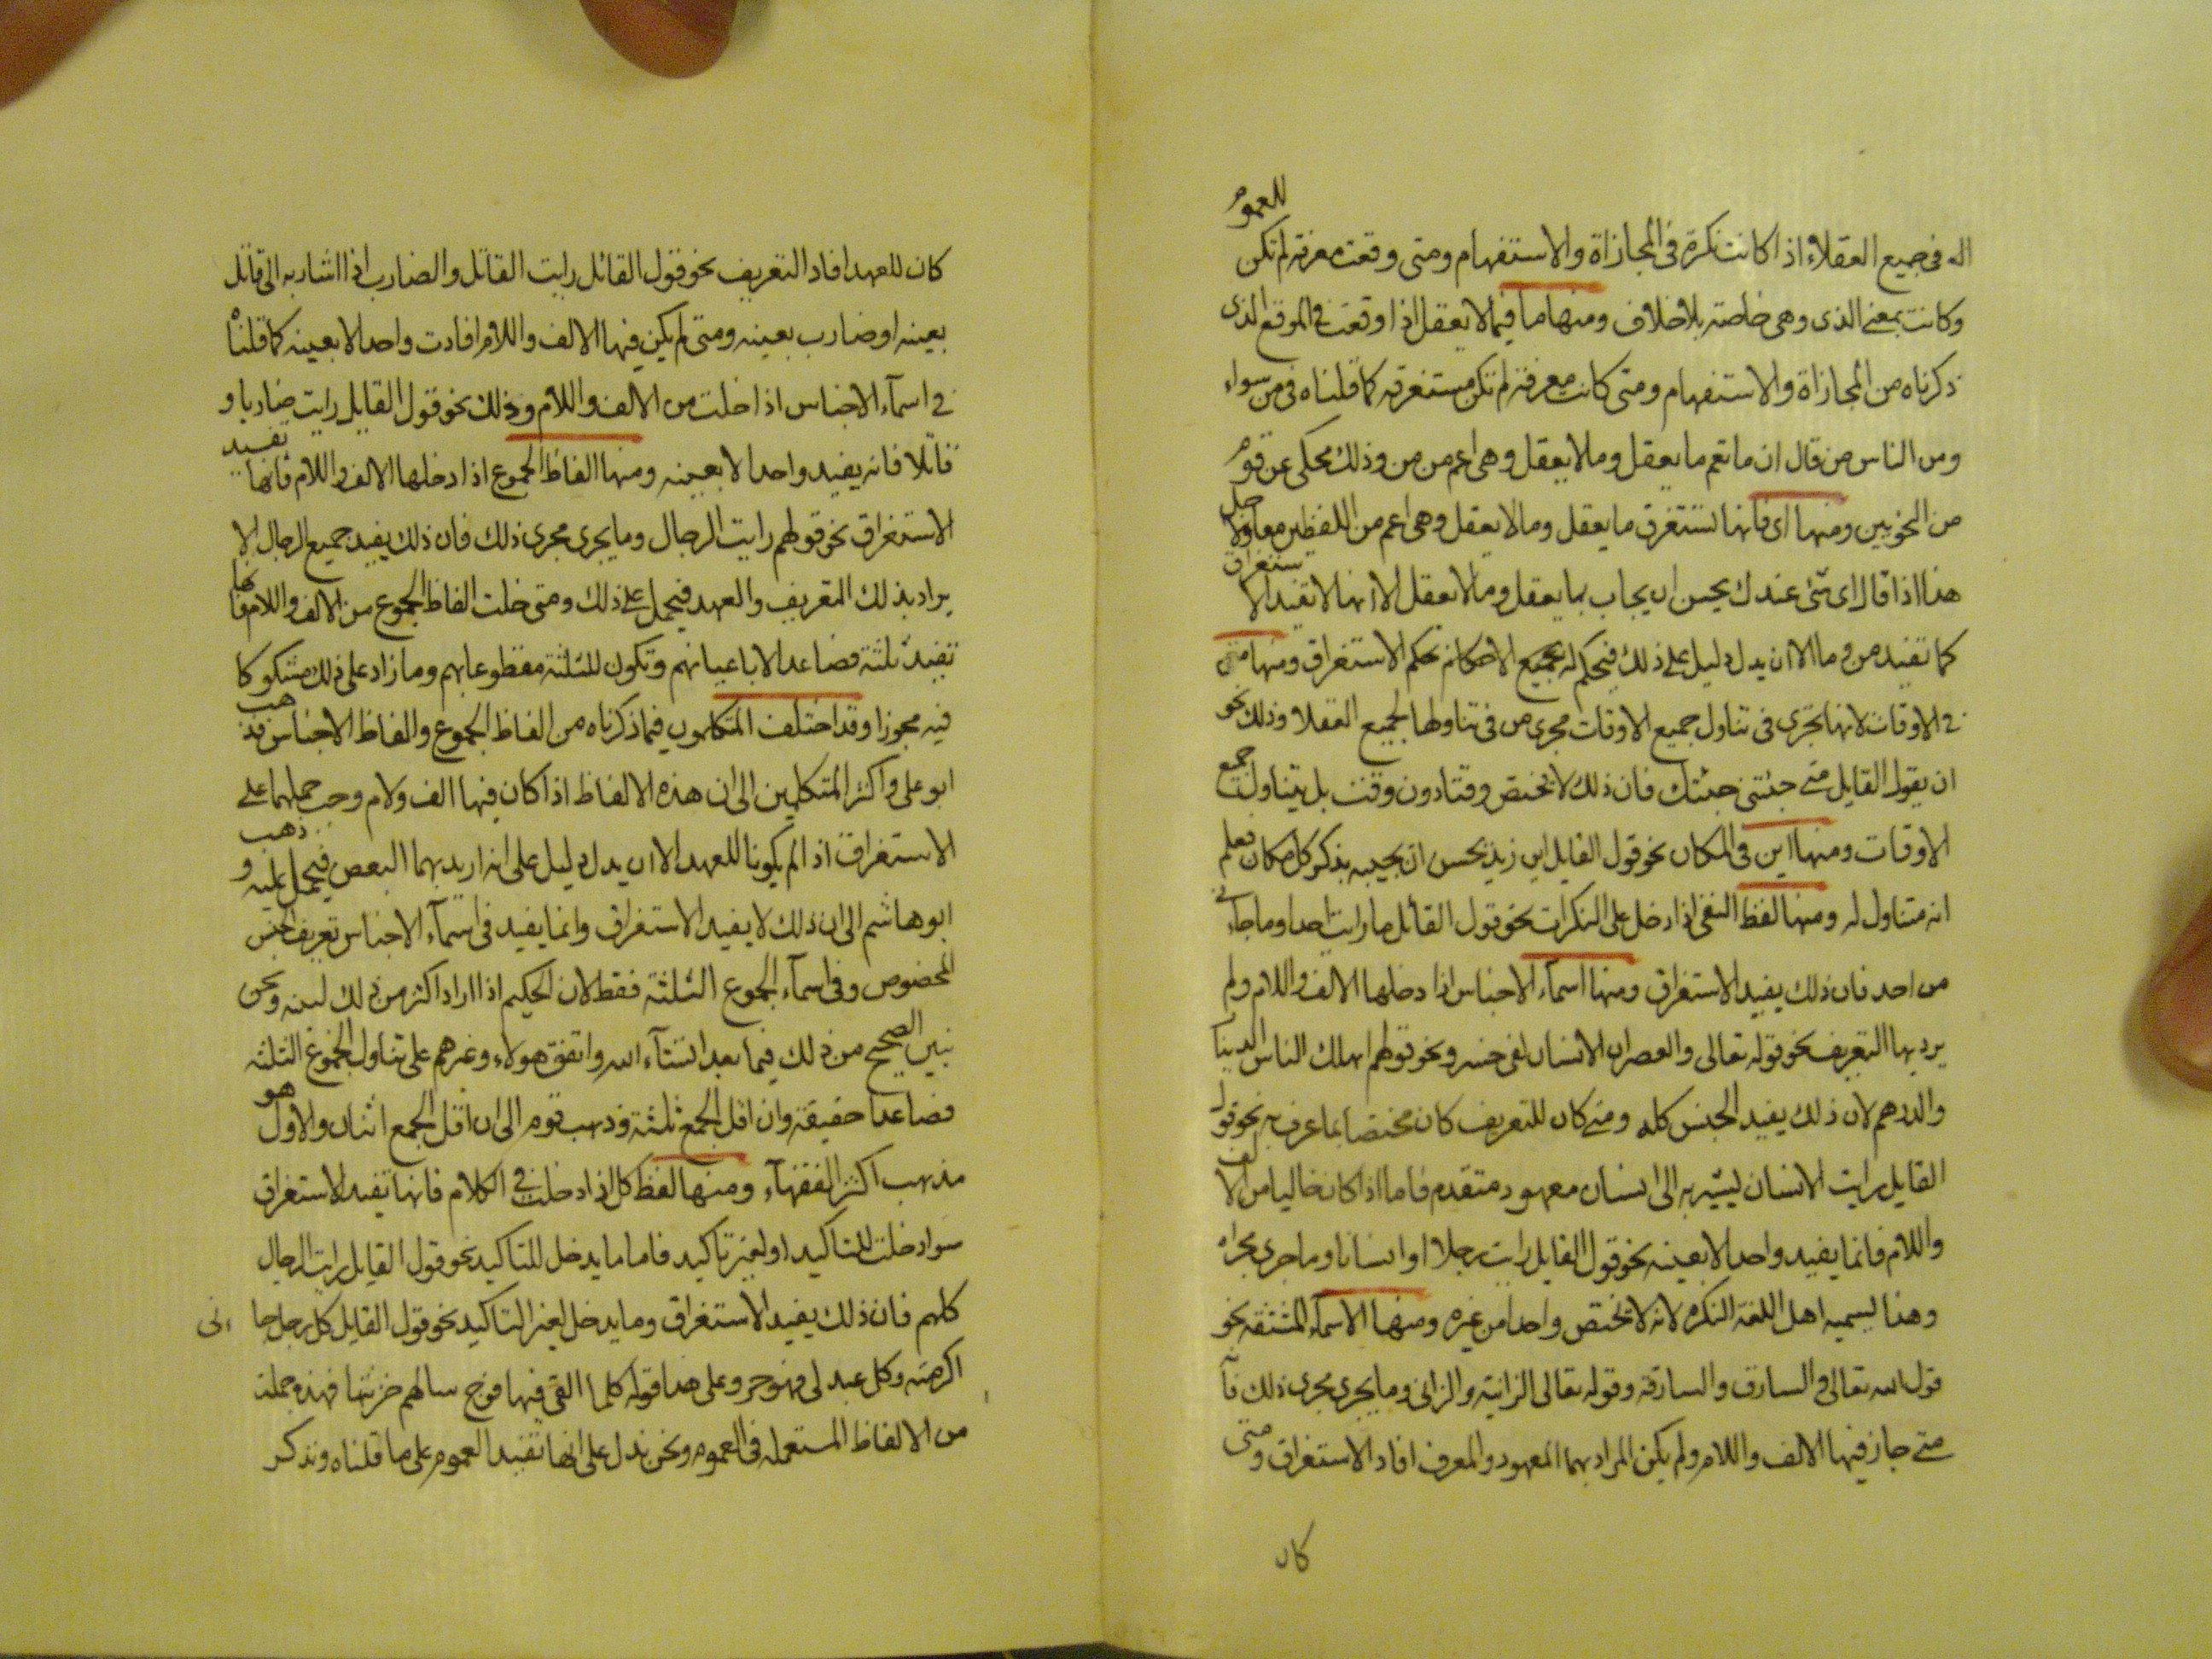 اله في جميع العقلاء اذا كانت نكرة في المجازاة والاستفهام ومتى وقعت معرفة لم تكن للعموم
وكانت بمعنى الذي وهي خاصة بلا خلاف ومنها ما فيما لا يعقل اذا وقعت في الموقع الذي
ذكرناه من المجازاة والاستفهام ومتى كانت معرفة لم تكن مستغرقة كما قلناه في من سواء
ومن الناس من قال ان ما تعم ما يعقل وما لا يعقل وهي اعم من من وذلك محكي عن قوم
من النحويين ومنها اي فانها تستغرق ما يعقل وما لا يعقل وهي اعم من اللفظين معا ولاجل
هذا اذا قال اي شئ عندك يحسن ان يجاب بما يعقل وما لا يعقل الا انها لا تفيد الاستغراق
كما تفيد من وما الا ان يدل دليل على ذلك فيحكم له بحكم الاستغراق ومنها متى
في الاوقات لانها تجري في تناول جميع الاوقات مجرى من في تناولها لجميع العقلا وذلك نحو
ان يقول القايل متى جئتني جئتك فان ذلك لا يختص وقتا دون وقت بل يتناول جميع
الاوقات ومنها اين في المكان نحو قول القايل اين زيد يحسن ان يجيبه بذكر كل مكان فعلم
انه متناول له ومنها لفظ النفي اذا دخل على النكرات نحو قول القائل ما رايت احدا وما جاءني
من احد فان ذلك يفيد الاستغراق ومنها اسماء الاجناس اذا دخلها الالف واللام ولم
يرد بها التعريف نحو قوله تعالى والعصر ان الانسان لفي خسر ونحو قولهم اهلك الناس الدينار
والدرهم لان ذلك يفيد الجنس كله ومتى كان للتعريف كان مختصا بما عرف به نحو قول
القايل رايت الانسان يشير به الى انسان معهود متقدم فاما اذا كان خاليا من الالف
واللام فانما يفيد واحدا لا بعينه نحو قول القايل رايت رجلا او انسانا وما جرى مجراه
وهذا يسميه اهل اللغة النكره لانه لا يختص واحدا من غيره ومنها الاسماء المشتقه نحو
قول الله تعالى والسارق والسارقة وقوله تعالى الزانية والزاني وما يجري مجرى ذلك فا
متى جاز فيها الالف واللام ولم يكن المراد بهما المعهود والمعرف افاد الاستغراق ومتى
كان
كان للعهد افاد التعريف نحو قول القائل رايت القاتل والضارب اذا اشار به الى قاتل
بعينه او ضارب بعينه ومتى لم يكن فيها الالف واللام افادت واحدا لا بعينه كما قلناه
في اسماء الاجناس اذا خلت من الالف واللام وذلك نحو قول القايل رايت ضاربا و
قاتلا فانه يفيد واحدا لا بعينه ومنها الفاظ الجموع اذا دخلها الالف واللام فانها تفيد
الاستغراق نحو قولهم رايت الرجال وما يجري مجرى ذلك فان ذلك يفيد جميع الرجال الا
يراد بذلك التعريف والعهد فيحمل على ذلك ومتى خلت الفاظ الجموع من الالف واللام فانها
تفيد ثلثة فصاعدا لا باعيانهم وتكون للثلثة مقطوعا بهم وما زاد على ذلك مشكوكا
فيه مجوزا وقد اختلف المتكلمون فيما ذكرناه من الفاظ الجموع والفاظ الاجناس فذهب
ابو علي واكثر المتكلمين الى ان هذه الالفاظ اذا كان فيها الف ولام وجب حملها على
الاستغراق اذا لم يكونا للعهد الا ان يدل دليل على انه اريد بهما البعض فيحمل عليه وذهب
ابو هاشم الى ان ذلك لا يفيد الاستغراق وانما يفيد في اسماء الاجناس تعريف الجنس
المخصوص وفي اسماء الجموع الثلثة فقط لان الحكيم اذا اراد اكثر من ذلك لبينه ونحن
نبين الصحيح من ذلك فيما بعد انشاء الله واتفق هولاء وغيرهم على تناول الجموع الثلثه
فصاعدا حقيقة وان اقل الجمع ثلثة وذهب قوم الى ان اقل الجمع اثنان والاول هو
مذهب اكثر الفقهاء ومنها لفظ كل اذا دخلت في الكلام فانها تفيد الاستغراق
سوا دخلت للتاكيد او لغير تاكيد فاما ما يدخل للتاكيد نحو قول القايل رايت الرجال
كلهم فان ذلك يفيد الاستغراق وما يدخل لغير التاكيد نحو قول القايل كل رجل جاءني
اكرمته وكل عبد لي فهو حر وعلى هذا قوله كلما القي فيها فوج سالهم خزنتها فهذه جملة
من الالفاظ المستعمله في العموم ونحن ندل على انها تفيد العموم على ما قلناه ونذكر